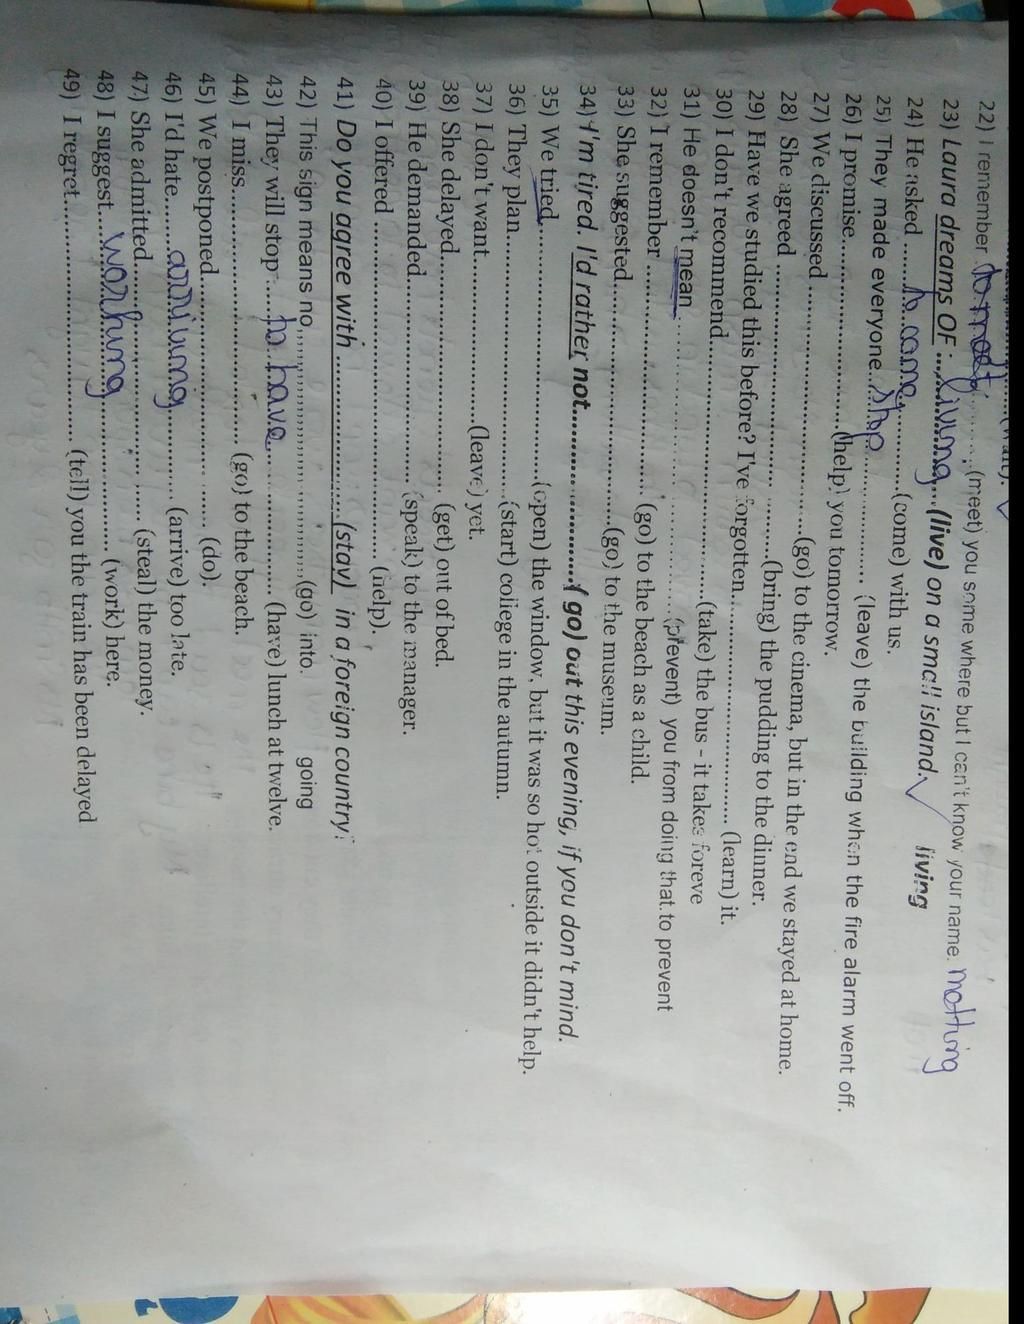 22) I remember ............ (meet) you some where but I can't know your name.
23) Laura dreams OF : ...living... (live) on a small island. living
24) He asked ........to come............(come) with us.
25) They made everyone.................... (leave) the building when the fire alarm went off.
26) I promise..............................(help) you tomorrow.
27) We discussed ........................................(go) to the cinema, but in the end we stayed at home.
28) She agreed ........................................(bring) the pudding to the dinner.
29) Have we studied this before? I've forgotten................................ (learn) it.
30) I don't recommend........................................(take) the bus - it takes foreve
31) He doesn't mean ........................................(prevent) you from doing that.to prevent
32) I remember ........................................ (go) to the beach as a child.
33) She suggested........................................(go) to the museum.
34) I'm tired. I'd rather not..............................( go) out this evening, if you don't mind.
35) We tried........................................(open) the window, but it was so hot outside it didn't help.
36) They plan........................................(start) college in the autumn.
37) I don't want..............................(leave) yet.
38) She delayed........................................ (get) out of bed.
39) He demanded........................................(speak) to the manager.
40) I offered ........................................ (help).
41) Do you agree with ..............................(stay) in a foreign country
42) This sign means no..............................(go) into. going
43) They will stop ....to have.................... (have) lunch at twelve.
44) I miss........................................ (go) to the beach.
45) We postponed.............................. (do).
46) I'd hate......arriving............ (arrive) too late.
47) She admitted.............................. (steal) the money.
48) I suggest....working............ (work) here.
49) I regret........................................ (tell) you the train has been delayed